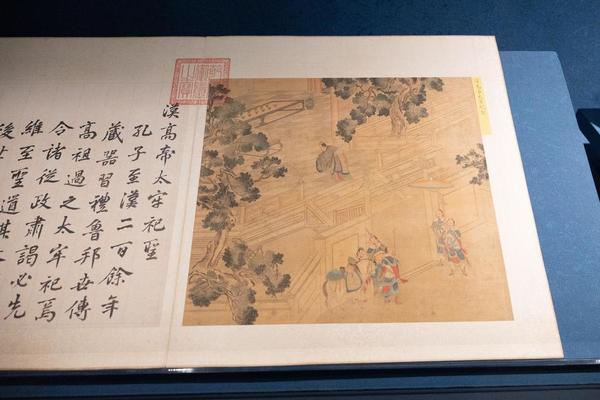 漢高帝太牢祀聖
孔子至漢二百餘年
藏器習禮魯邦世傳
高祖過之太牢祀焉
令諸從政肅謁必先
維至聖道
後